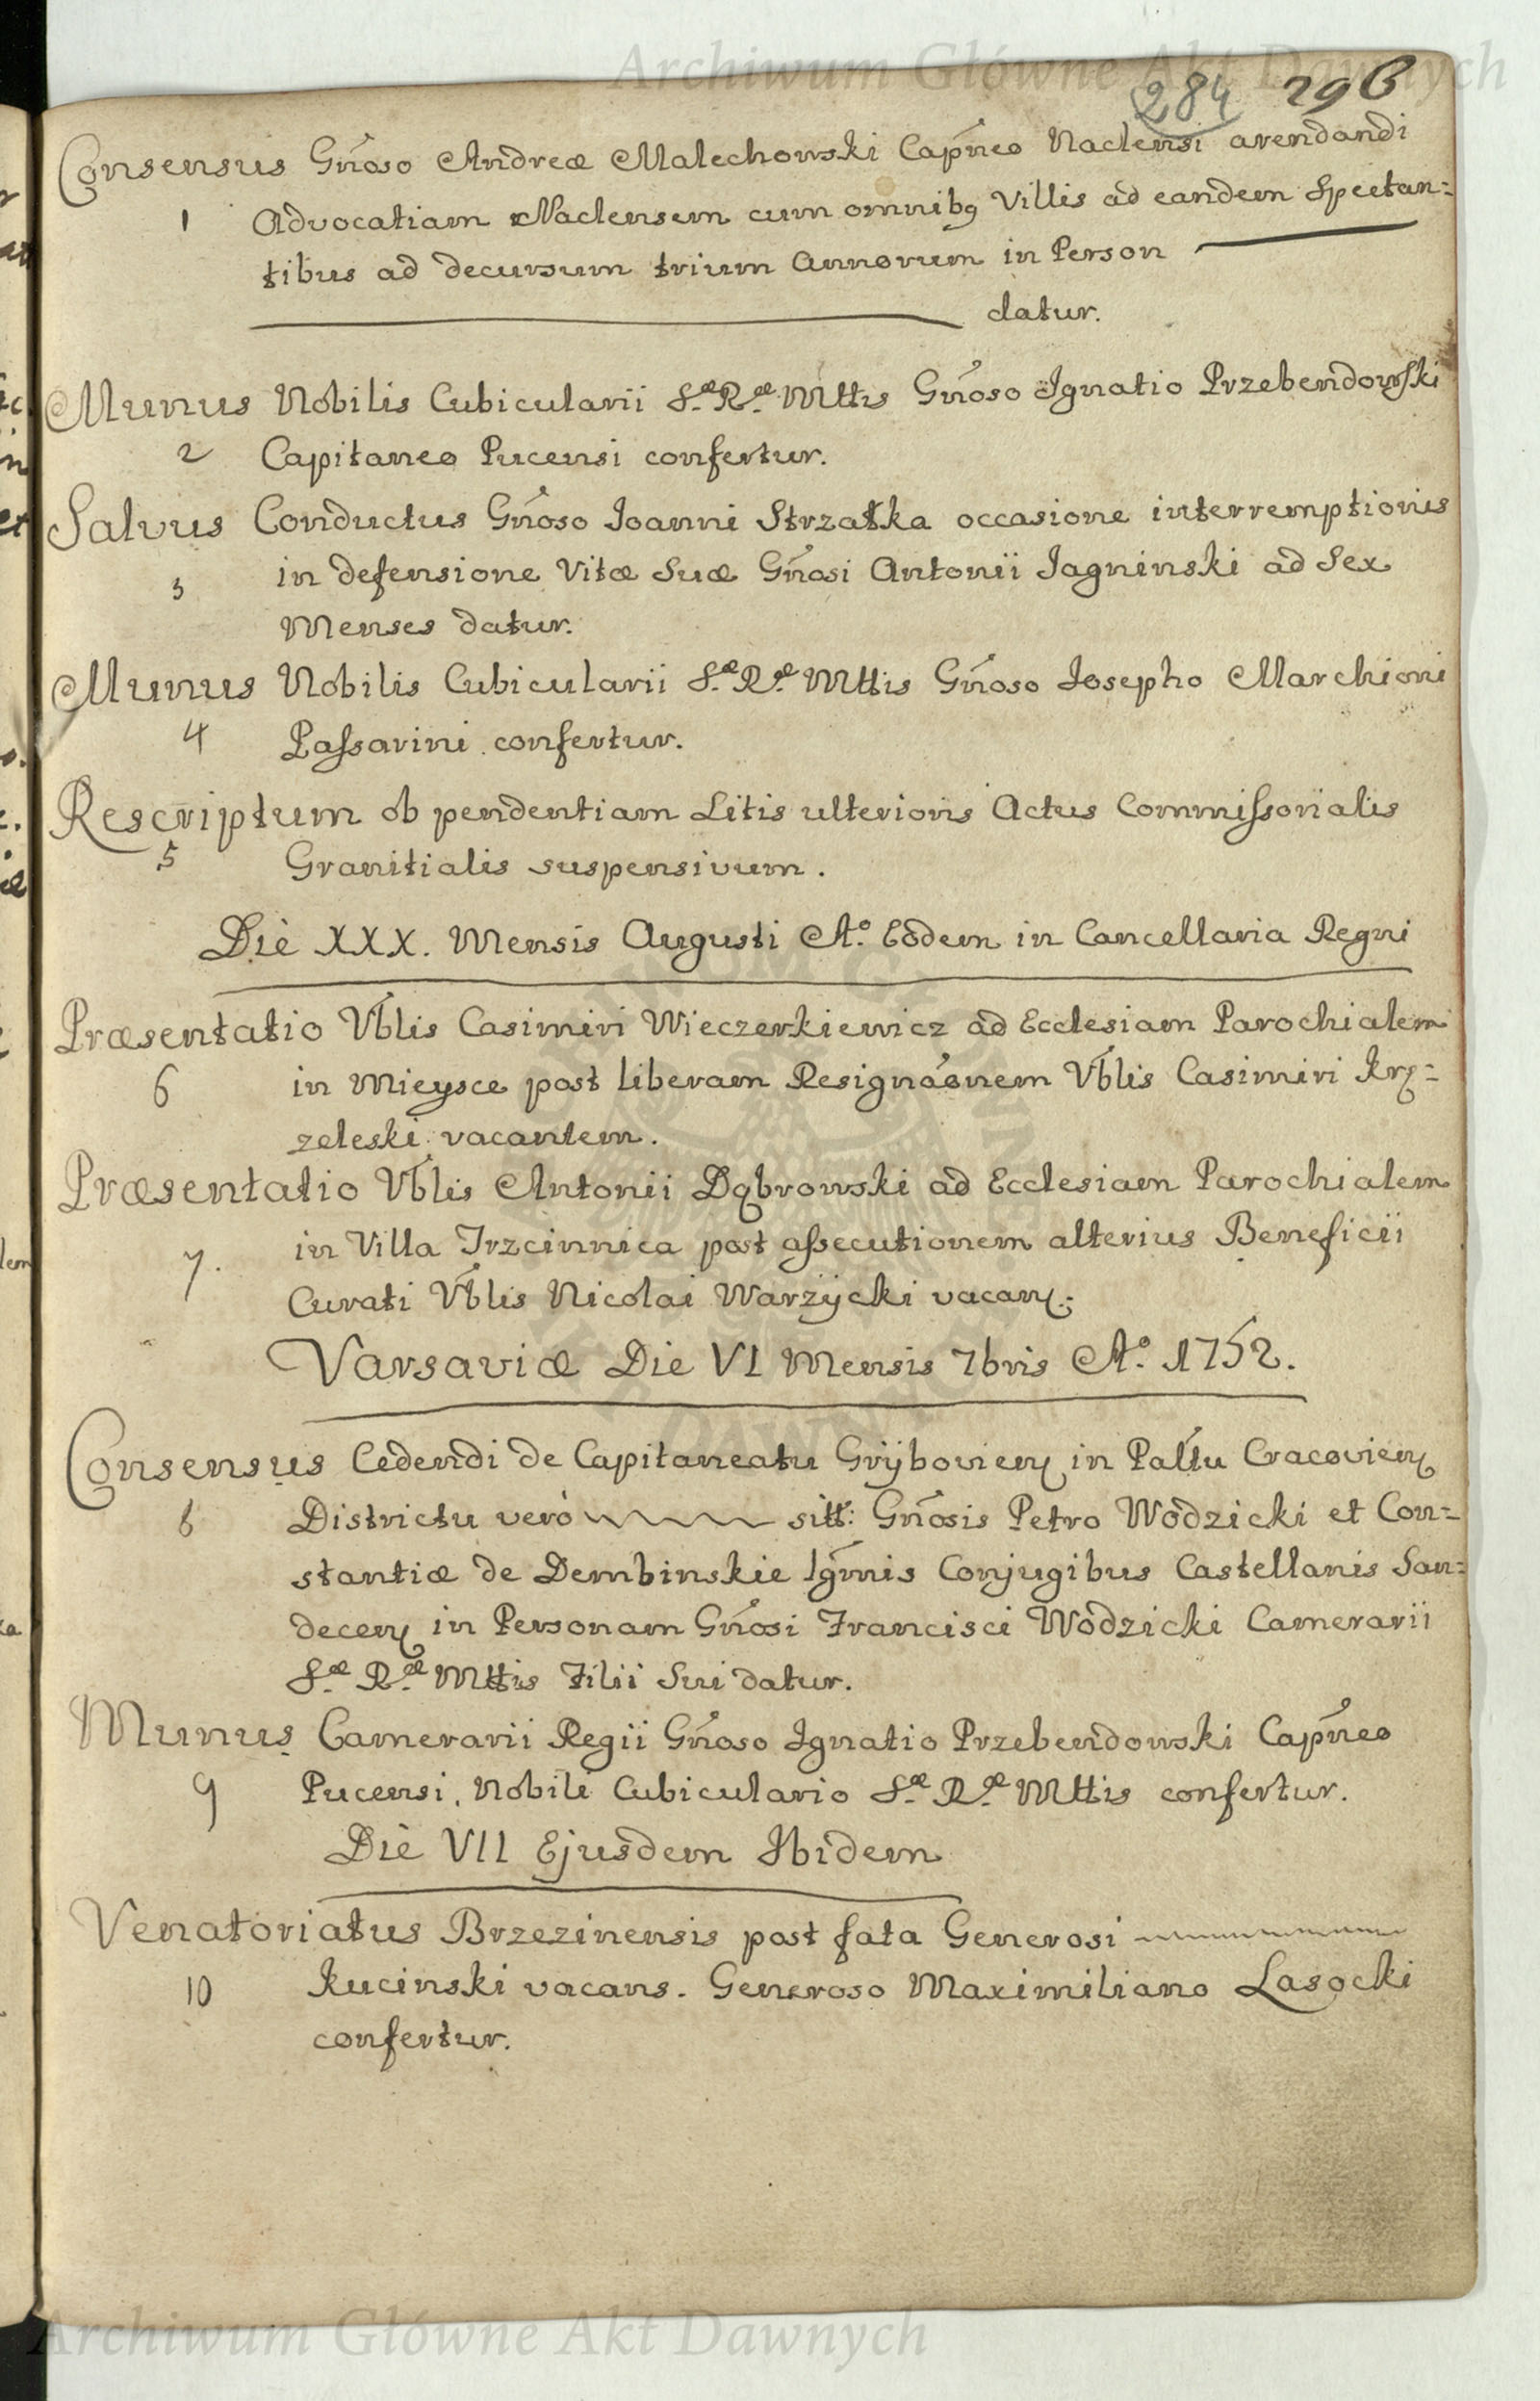 Archiwum Główne Akt Dawnych
284 296
Consensus Gnoso Andreæ Malechowski Capneo Naclensi arendandi
1 Advocatiam Naclensem cum omnibq Villis ad eandem Spectan=
tibus ad decursum trium Annorum in Person
datur.
Munus Nobilis Cubicularii S.æ R.æ Mttis Gnoso Ignatio Przebendowski
2 Capitaneo Pucensi confertur.
Salvus Conductus Gnoso Joanni Strzałka occasione interremptionis
3 in defensione Vitæ Suæ Gnosi Antonii Jagninski ad Sex
Menses datur.
Munus Nobilis Cubicularii S.æ R.æ Mttis Gnoso Josepho Marchioni
4 Passarini confertur.
Rescriptum ob pendentiam Litis ulterioris Actus Commissorialis
5 Granitialis suspensivum.
Die XXX. Mensis Augusti A.º Eodem in Cancellaria Regni
Præsentatio Vblis Casimiri Wieczerkiewicz ad Ecclesiam Parochialem
6 in Mieysce post liberam Resignaonem Vblis Casimiri Krę=
zeleski vacantem.
Præsentatio Vblis Antonii Dąbrowski ad Ecclesiam Parochialem
7. in Villa Trzcinnica post assecutionem alterius Beneficii
Curati Vblis Nicolai Warzÿcki vacan.
Varsaviæ Die VI Mensis 7bris A.º 1752.
Consensus Cedendi de Capitaneatu Grÿbovien in Paltu Cracovien
8 Districtu vero sitt: Gnosis Petro Wodzicki et Con=
stantiæ de Dembinskie Igmis Conjugibus Castellanis San=
decen in Personam Gnosi Francisci Wodzicki Camerarii
S.æ R.æ Mttis Filii Sui datur.
Munus Camerarii Regii Gnoso Ignatio Przebendowski Capneo
9 Pucensi, Nobili Cubiculario S.æ R.æ Mttis confertur.
Die VII Ejusdem Ibidem
Venatoriatus Brzezinensis post fata Generosi
10 Kucinski vacans. Generoso Maximiliano Lasocki
confertur.
Archiwum Główne Akt Dawnych